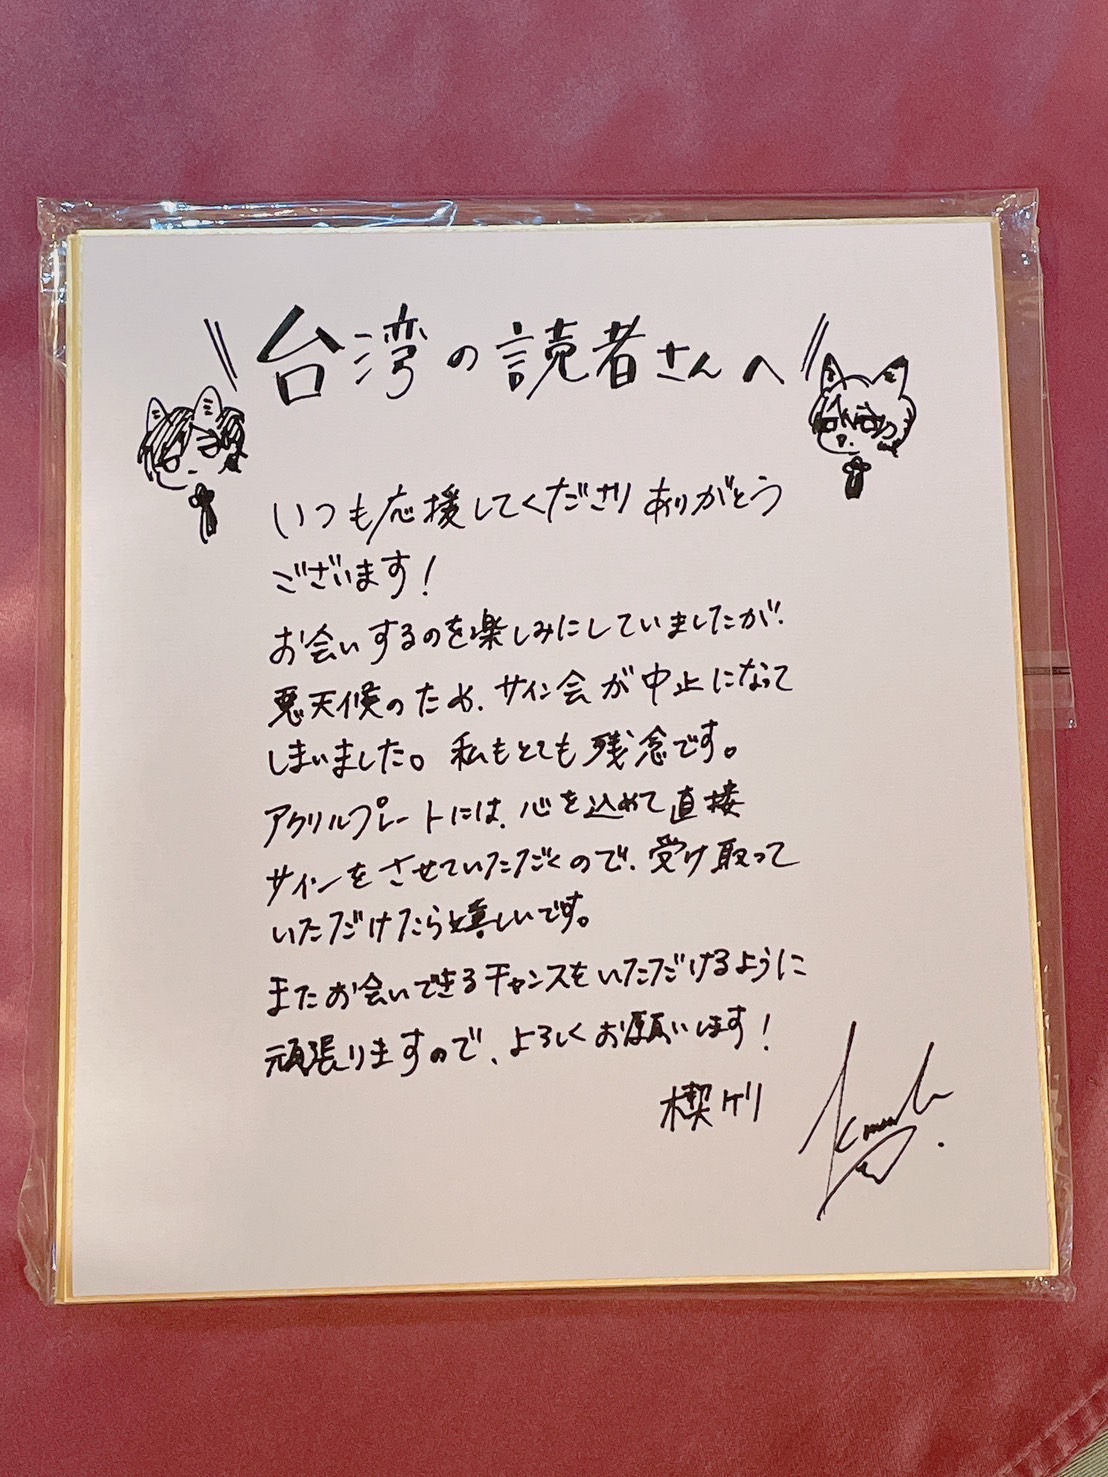 台湾の読者さんへ
いつも応援してくださりありがとう
ございます!
お会いするのを楽しみにしていましたが、
悪天候のため、サイン会が中止になって
しまいました。私もとても残念です。
アクリルプレートには、心を込めて直接
サインをさせていただくので、受け取って
いただけたら嬉しいです。
またお会いできるチャンスをいただけるように
頑張りますので、よろしくお願いします!
楔ケリ